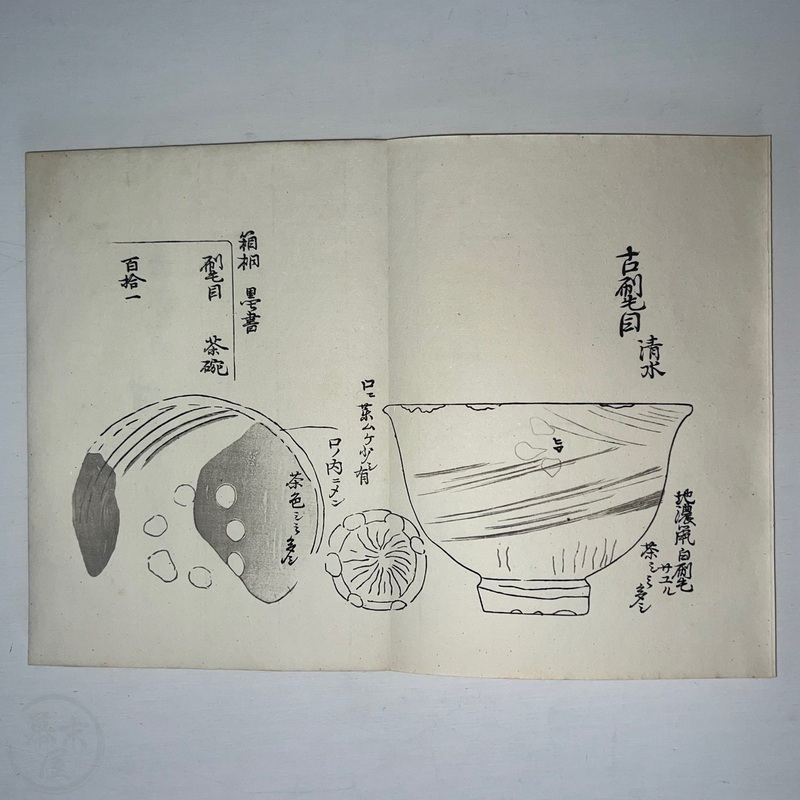 古刷毛目
清水
地濃鼠白刷毛
サユル
茶シミ多シ
口ニ茶ムケ少シ有
口ノ内ニメン
茶色シミ多シ
箱桐 墨書
刷毛目 茶碗
百拾一